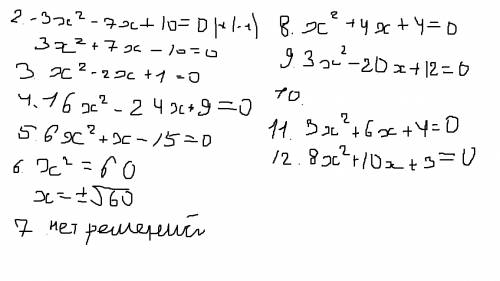 2. -3x² - 7x + 10 = 0 |*(-1)
3x² + 7x - 10 = 0
3. x² - 2x + 1 = 0
4. 16x² - 24x + 9 = 0
5. 6x² + x - 15 = 0
6. x² = 60
x = ±√60
7 нет решений
8. x² + 4x + 4 = 0
9. 3x² - 20x + 12 = 0
10.
11. 3x² + 6x + 4 = 0
12. 8x² + 10x + 3 = 0